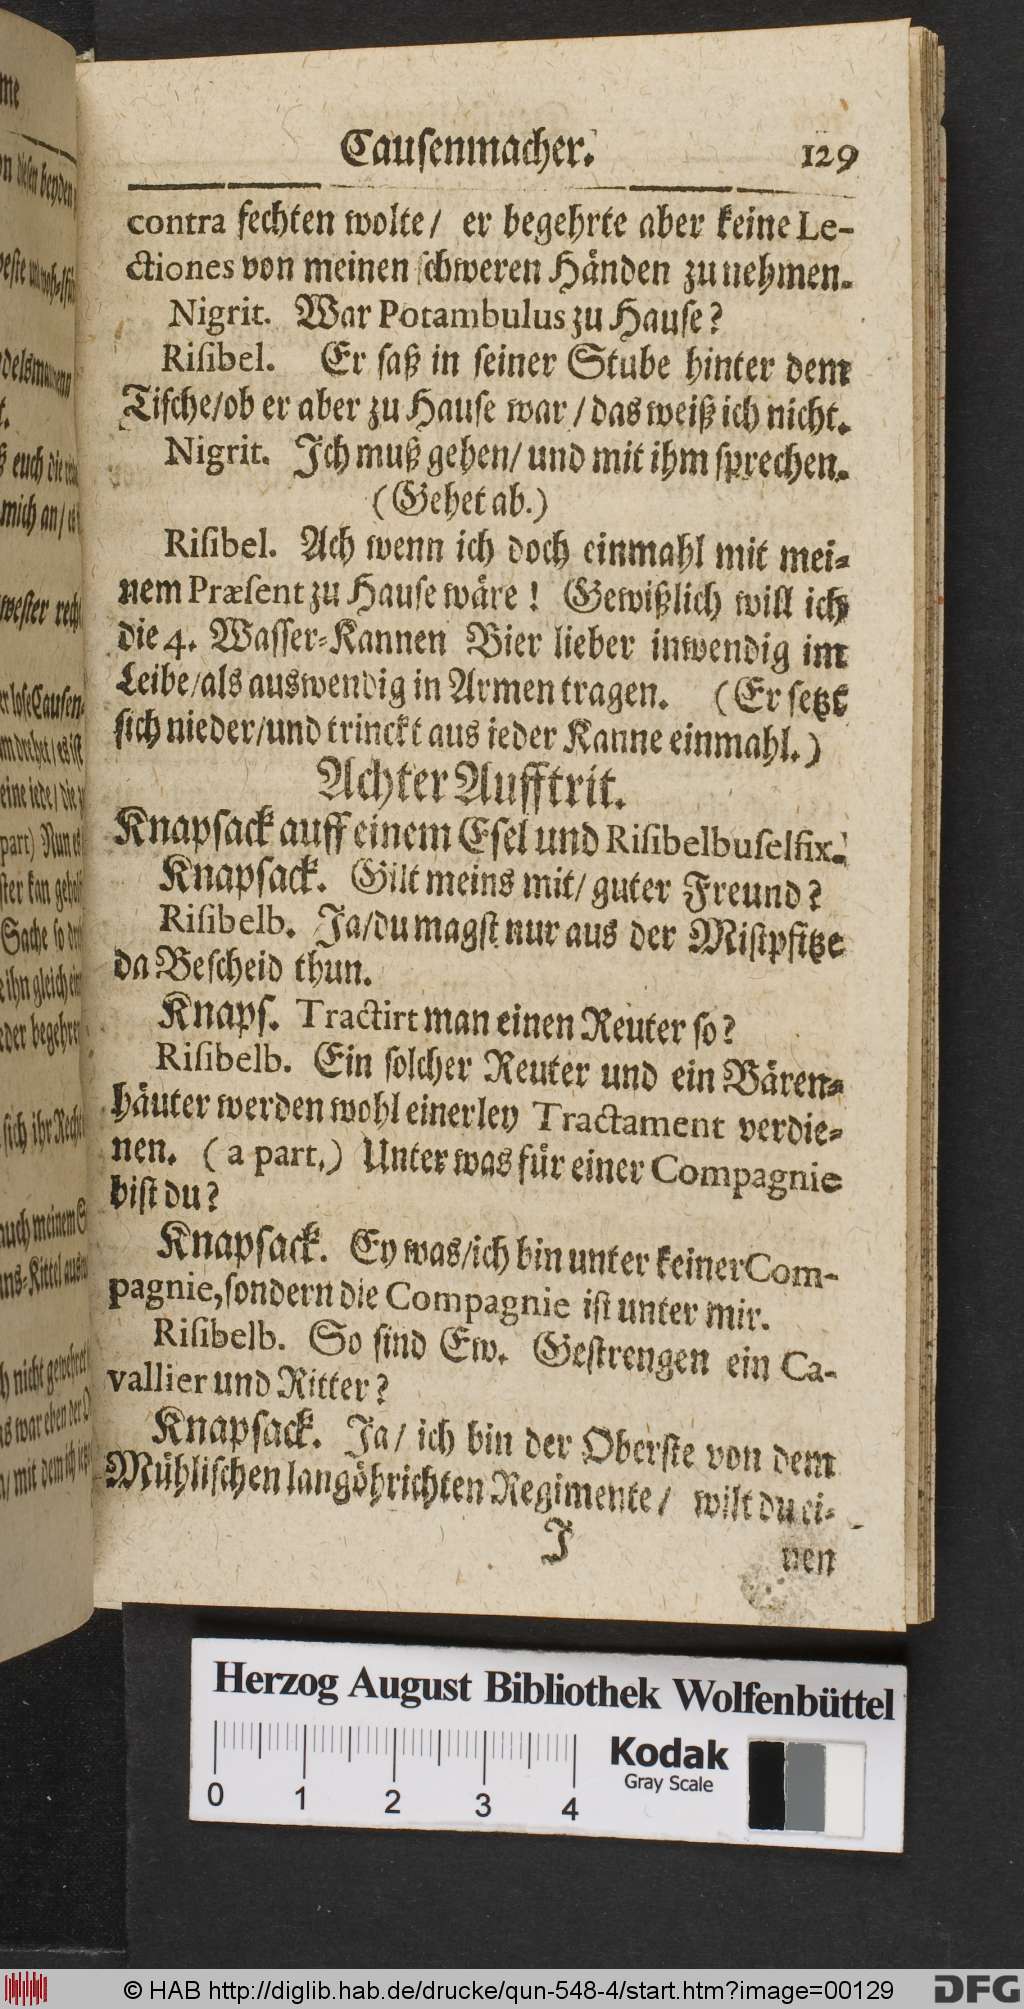 Causenmacher. 129
contra fechten wolte/ er begehrte aber keine Le-
ctiones von meinen schweren Händen zu nehmen.
Nigrit. War Potambulus zu Hause?
Risibel. Er saß in seiner Stube hinter dem
Tische/ob er aber zu Hause war/das weiß ich nicht.
Nigrit. Ich muß gehen/ und mit ihm sprechen.
(Gehet ab.)
Risibel. Ach wenn ich doch einmahl mit mei-
nem Præsent zu Hause wäre! Gewißlich will ich
die 4. Wasser-Kannen Bier lieber inwendig im
Leibe/als auswendig in Armen tragen. (Er setzt
sich nieder/und trinckt aus ieder Kanne einmahl.)
Achter Aufftrit.
Knapsack auff einem Esel und Risibelbuselfix.
Knapsack. Gilt meins mit/ guter Freund?
Risibelb. Ja/du magst nur aus der Mistpfitze
da Bescheid thun.
Knaps. Tractirt man einen Reuter so?
Risibelb. Ein solcher Reuter und ein Bären-
häuter werden wohl einerley Tractament verdie-
nen. (a part.) Unter was für einer Compagnie
bist du?
Knapsack. Ey was/ich bin unter keiner Com-
pagnie, sondern die Compagnie ist unter mir.
Risibelb. So sind Ew. Gestrengen ein Ca-
vallier und Ritter?
Knapsack. Ja/ ich bin der Oberste von dem
Mühlischen langöhrichten Regimente/ wilt du ei-
J
nen
Herzog August Bibliothek Wolfenbüttel
0 1 2 3 4
Kodak
Gray Scale
© HAB http://diglib.hab.de/drucke/qun-548-4/start.htm?image=00129
DFG